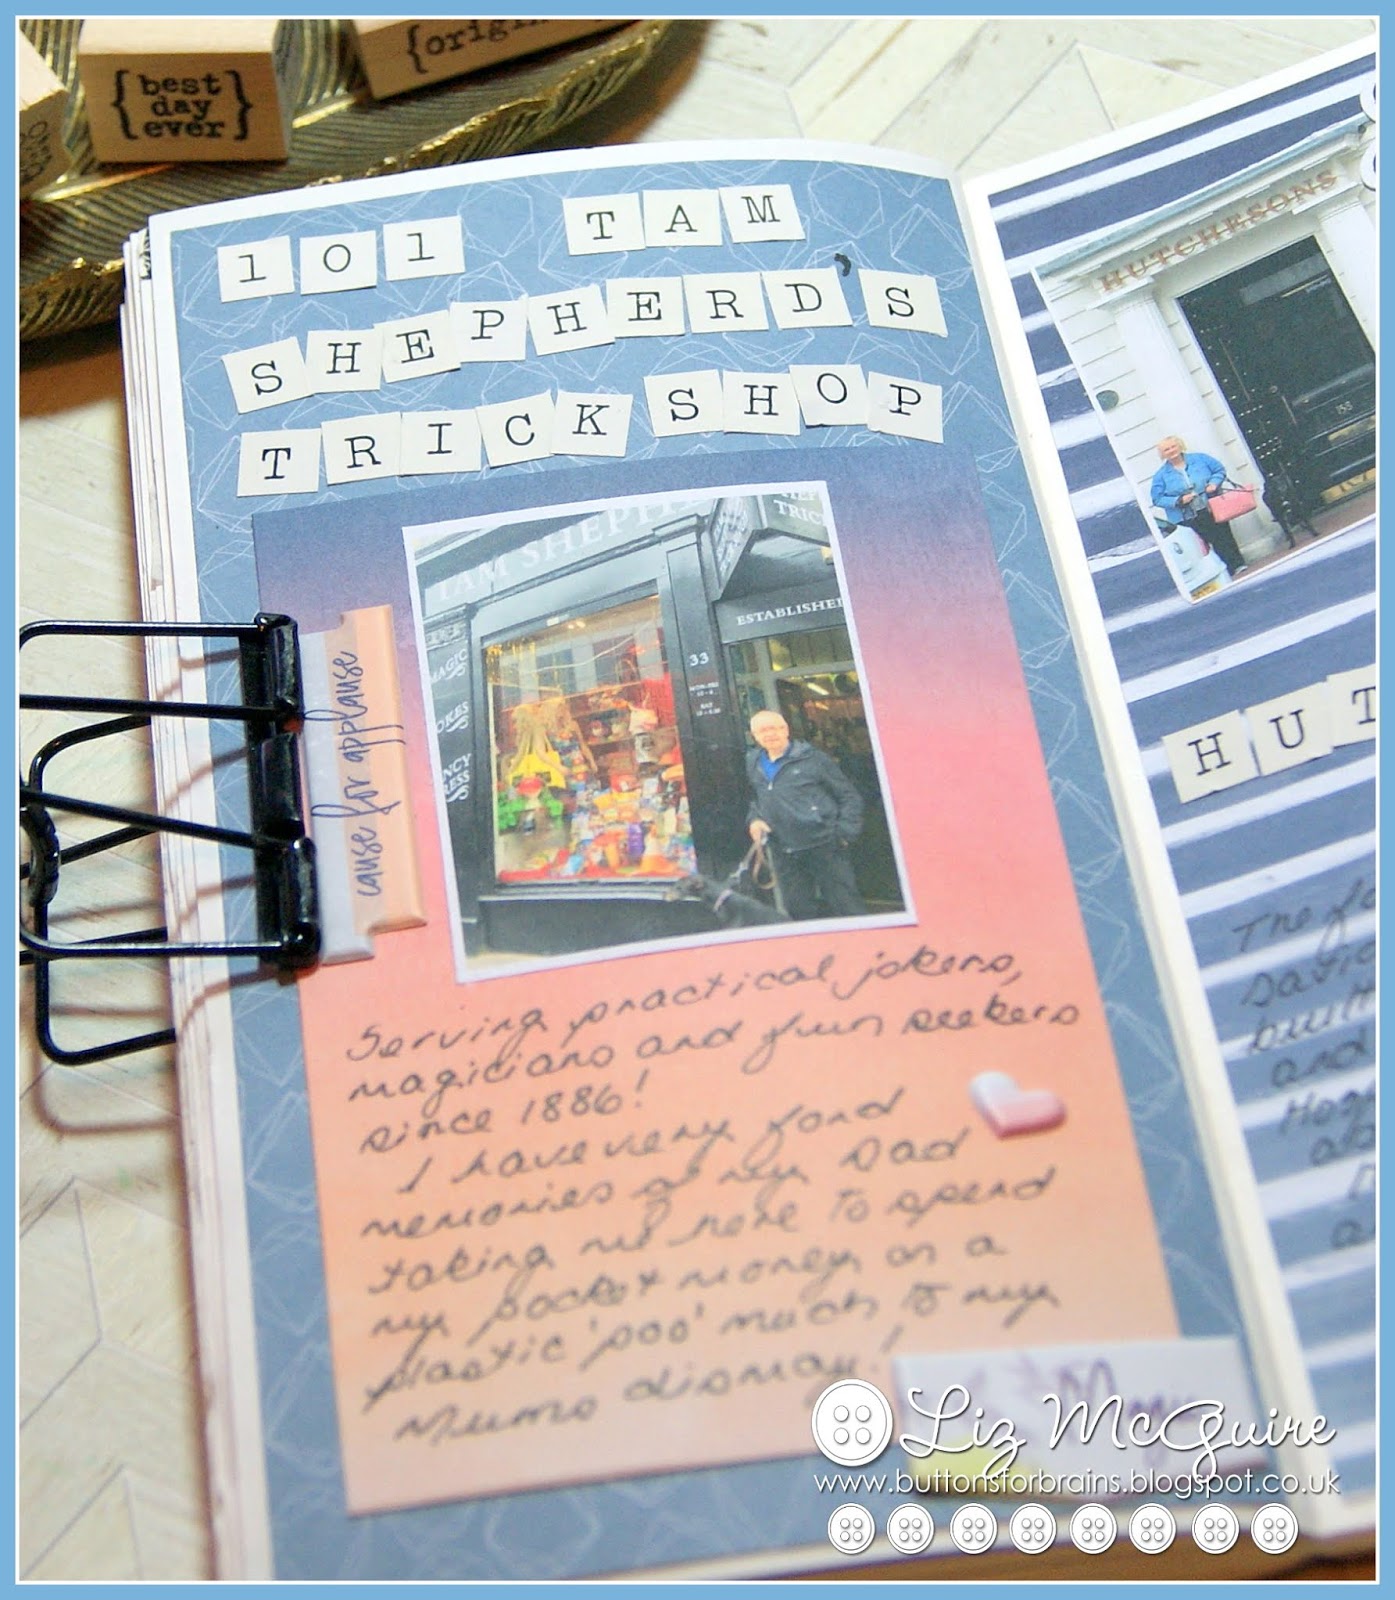 {best
day
ever}
{origin
101 TAM
SHEPHERD'S
TRICK SHOP
TAM SHEPH
TRIC
ESTABLISHED
33
MAGIC
OKES
cause for applause
Serving practical jokers,
magicians and fun seekers
since 1886!
I have very fond
memories of my Dad
taking me here to spend
my pocket money on a
plastic 'poo' much to my
Mums dismay!
Magic
HUTCHESONS
HUT
The fo
David
built
and
Liz McGuire
www.buttonsforbrains.blogspot.co.uk